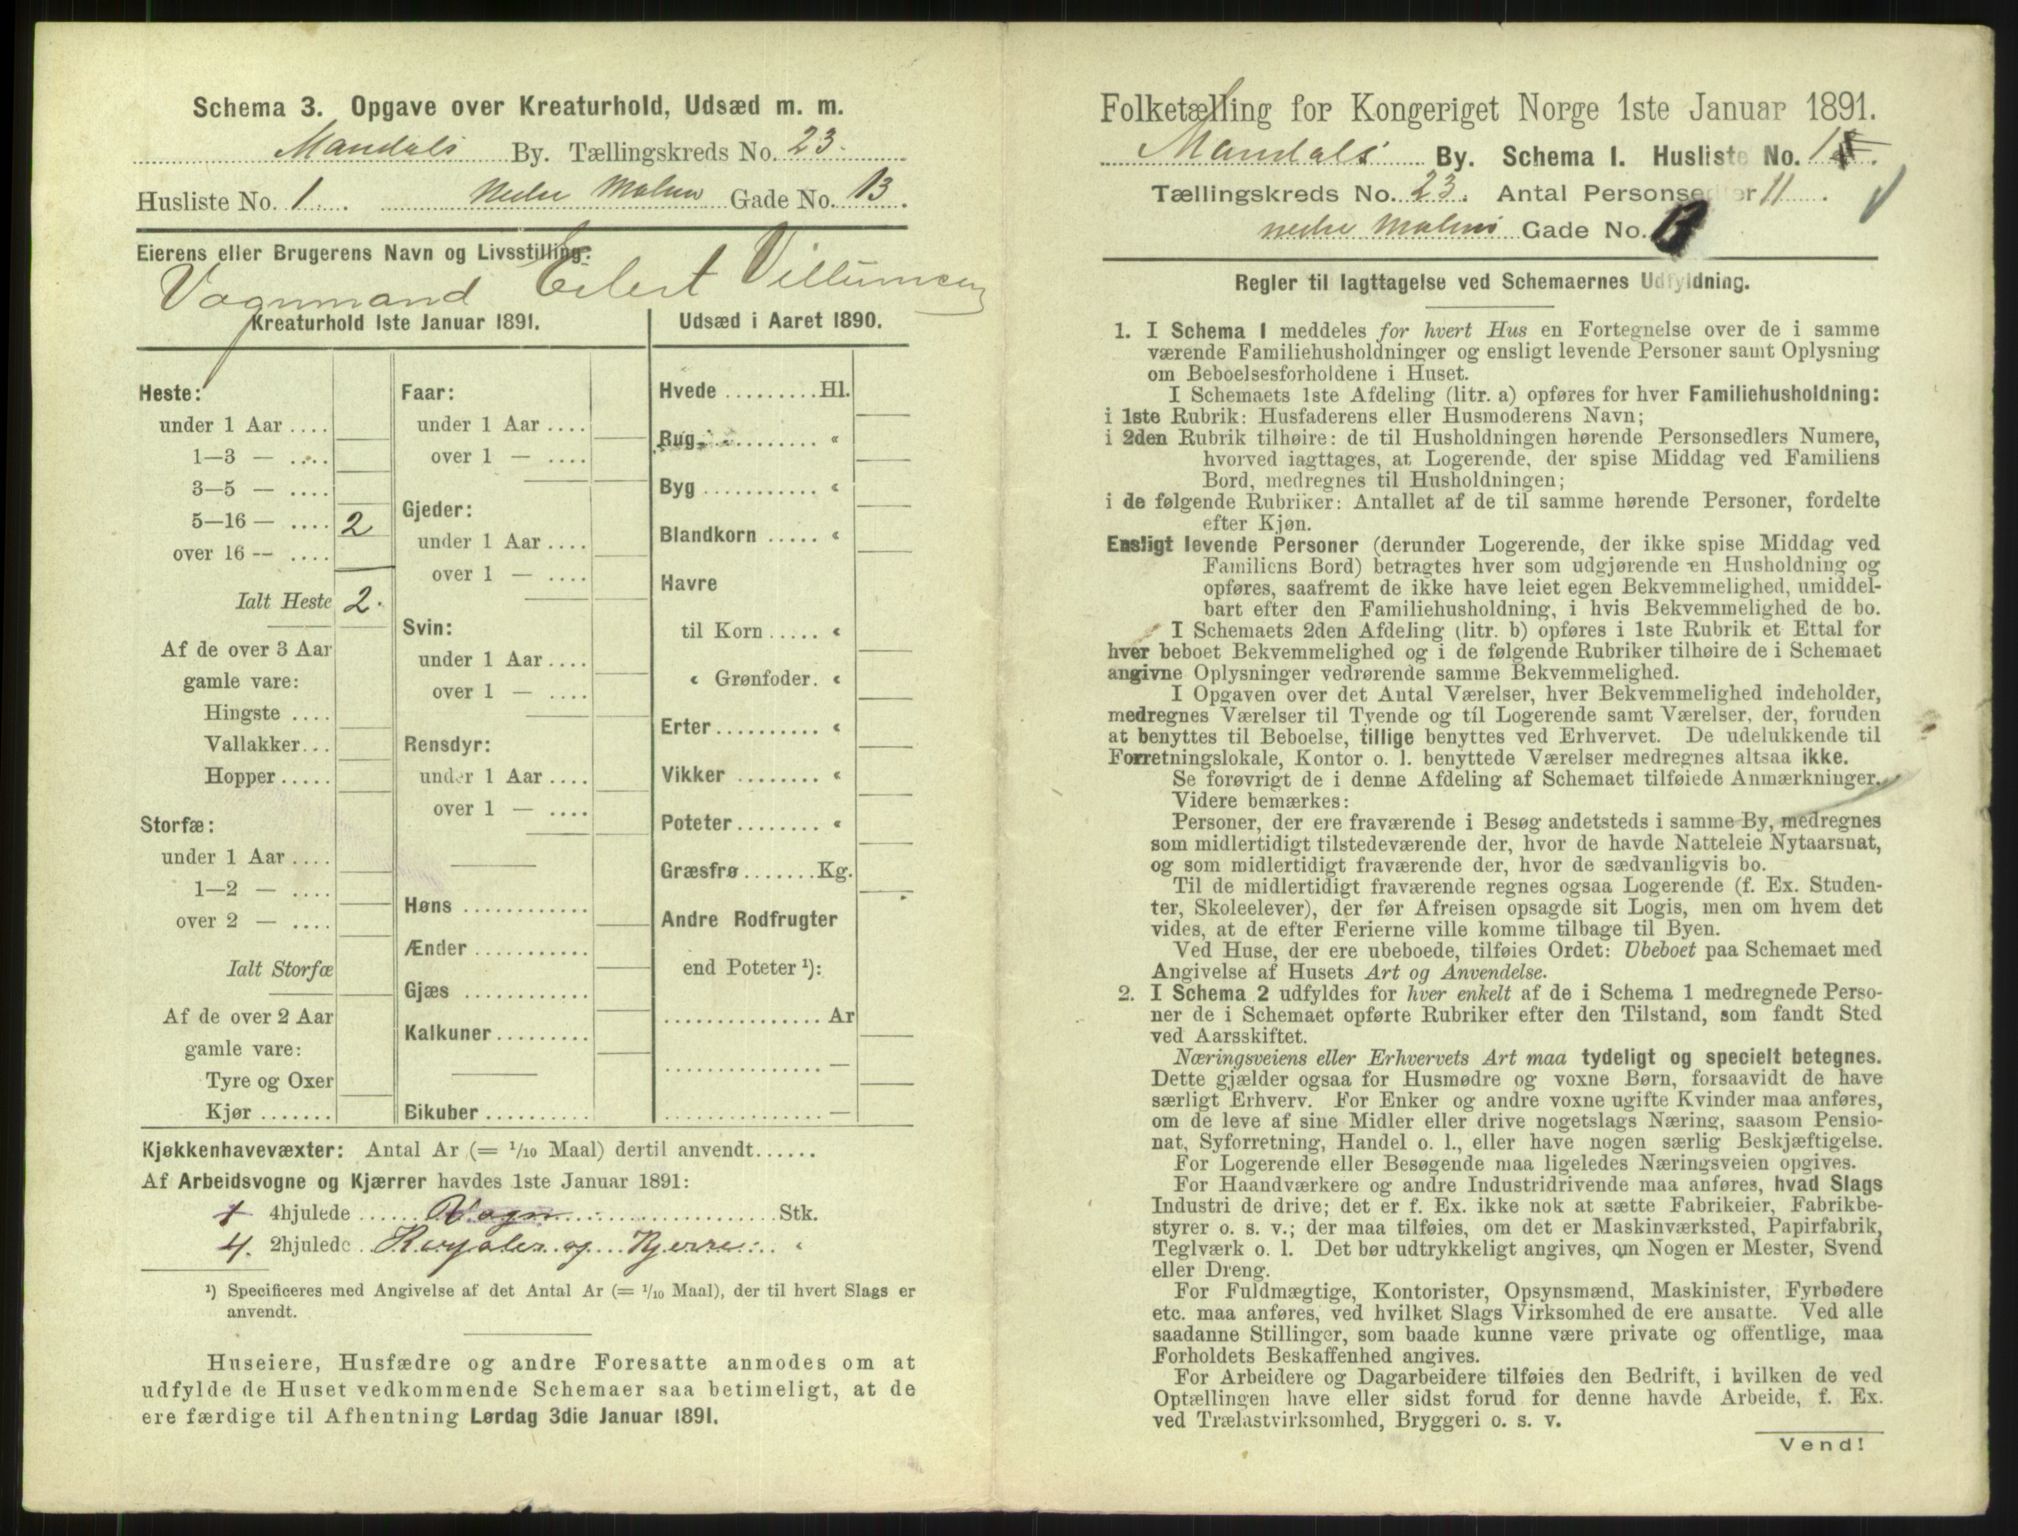 Schema 3. Opgave over Kreaturhold, Udsæd m. m.
Mandals By. Tællingskreds No. 23.
Husliste No. 1. Nedre Malmø Gade No. 13.
Eierens eller Brugerens Navn og Livsstilling:
Vognmand Eilert Villumsen
Kreaturhold 1ste Januar 1891.
Heste:
under 1 Aar ....
1—3 — ....
3—5 — ....
5—16 — .... 2
over 16 -- ....
Ialt Heste 2.
Af de over 3 Aar
gamle vare:
Hingste ....
Vallakker...
Hopper.....
Storfæ:
under 1 Aar ....
1—2 — ....
over 2 — ....
Ialt Storfæ
Af de over 2 Aar
gamle vare:
Tyre og Oxer
Kjør .......
Faar:
under 1 Aar ....
over 1 — ....
Gjeder:
under 1 Aar ....
over 1 — ....
Svin:
under 1 Aar ....
over 1 — ....
Rensdyr:
under 1 Aar ....
over 1 — ....
Høns ............
Ænder ...........
Gjæs ............
Kalkuner .........
Bikuber ..........
Udsæd i Aaret 1890.
Hvede .........Hl.
Rug. .......... «
Byg ........... «
Blandkorn ..... «
Havre
til Korn ..... «
« Grønfoder. «
Erter.......... «
Vikker ........ «
Poteter........ «
Græsfrø .......Kg.
Andre Rodfrugter
end Poteter ¹):
............... Ar
............... —
............... —
Kjøkkenhavevæxter: Antal Ar (= 1/10 Maal) dertil anvendt......
Af Arbeidsvogne og Kjærrer havdes 1ste Januar 1891:
1 4hjulede ...... Vogn ........ Stk.
4. 2hjulede og Kjerrer «
¹) Specificeres med Angivelse af det Antal Ar (= 1/10 Maal), der til hvert Slags er
anvendt.
Huseiere, Husfædre og andre Foresatte anmodes om at
udfylde de Huset vedkommende Schemaer saa betimeligt, at de
ere færdige til Afhentning Lørdag 3die Januar 1891.
Folketælling for Kongeriget Norge 1ste Januar 1891.
Mandals By. Schema I. Husliste No. 1
Tællingskreds No. 23. Antal Personsedler 11
nedre Malmø Gade No. 13
Regler til Iagttagelse ved Schemaernes Udfyldning.
1. I Schema 1 meddeles for hvert Hus en Fortegnelse over de i samme
værende Familiehusholdninger og ensligt levende Personer samt Oplysning
om Beboelsesforholdene i Huset.
I Schemaets 1ste Afdeling (litr. a) opføres for hver Familiehusholdning:
i 1ste Rubrik: Husfaderens eller Husmoderens Navn;
i 2den Rubrik tilhøire: de til Husholdningen hørende Personsedlers Numere,
hvorved iagttages, at Logerende, der spise Middag ved Familiens
Bord, medregnes til Husholdningen;
i de følgende Rubriker: Antallet af de til samme hørende Personer, fordelte
efter Kjøn.
Ensligt levende Personer (derunder Logerende, der ikke spise Middag ved
Familiens Bord) betragtes hver som udgjørende en Husholdning og
opføres, saafremt de ikke have leiet egen Bekvemmelighed, umiddel-
bart efter den Familiehusholdning, i hvis Bekvemmelighed de bo.
I Schemaets 2den Afdeling (litr. b) opføres i 1ste Rubrik et Ettal for
hver beboet Bekvemmelighed og i de følgende Rubriker tilhøire de i Schemaet
angivne Oplysninger vedrørende samme Bekvemmelighed.
I Opgaven over det Antal Værelser, hver Bekvemmelighed indeholder,
medregnes Værelser til Tyende og til Logerende samt Værelser, der, foruden
at benyttes til Beboelse, tillige benyttes ved Erhvervet. De udelukkende til
Forretningslokale, Kontor o. l. benyttede Værelser medregnes altsaa ikke.
Se forøvrigt de i denne Afdeling af Schemaet tilføiede Anmærkninger.
Videre bemærkes:
Personer, der ere fraværende i Besøg andetsteds i samme By, medregnes
som midlertidigt tilstedeværende der, hvor de havde Natteleie Nytaarsnat,
og som midlertidigt fraværende der, hvor de sædvanligvis bo.
Til de midlertidigt fraværende regnes ogsaa Logerende (f. Ex. Studen-
ter, Skoleelever), der før Afreisen opsagde sit Logis, men om hvem det
vides, at de efter Ferierne ville komme tilbage til Byen.
Ved Huse, der ere ubeboede, tilføies Ordet: Ubeboet paa Schemaet med
Angivelse af Husets Art og Anvendelse.
2. I Schema 2 udfyldes for hver enkelt af de i Schema 1 medregnede Perso-
ner de i Schemaet opførte Rubriker efter den Tilstand, som fandt Sted
ved Aarsskiftet.
Næringsveiens eller Erhvervets Art maa tydeligt og specielt betegnes.
Dette gjælder ogsaa for Husmødre og voxne Børn, forsaavidt de have
særligt Erhverv. For Enker og andre voxne ugifte Kvinder maa anføres,
om de leve af sine Midler eller drive nogetslags Næring, saasom Pensio-
nat, Syforretning, Handel o. l., eller have nogen særlig Beskjæftigelse.
For Logerende eller Besøgende maa ligeledes Næringsveien opgives.
For Haandværkere og andre Industridrivende maa anføres, hvad Slags
Industri de drive; det er f. Ex. ikke nok at sætte Fabrikeier, Fabrikbe-
styrer o. s. v.; der maa tilføies, om det er Maskinværksted, Papirfabrik,
Teglværk o. l. Det bør udtrykkeligt angives, om Nogen er Mester, Svend
eller Dreng.
For Fuldmægtige, Kontorister, Opsynsmænd, Maskinister, Fyrbødere
etc. maa anføres, ved hvilket Slags Virksomhed de ere ansatte. Ved alle
saadanne Stillinger, som baade kunne være private og offentlige, maa
Forholdets Beskaffenhed angives.
For Arbeidere og Dagarbeidere tilføies den Bedrift, i hvilken de ved
Optællingen have eller sidst forud for denne havde Arbeide, f. Ex.
ved Trælastvirksomhed, Bryggeri o. s. v.
Vend!